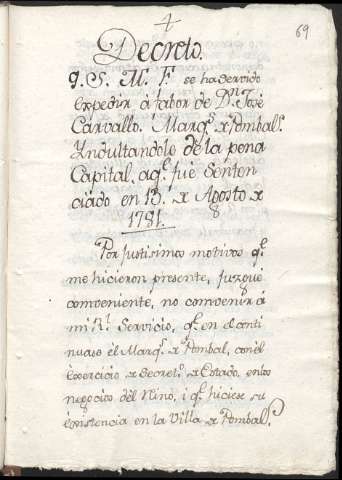 69
Decreto.
q. S. M. F. se ha servido
expedir à fabor de Dn. José
Carvallo. Marqs. x Pombal.
Yndultandole de la pena
Capital, aq. fué senten
ciado en 13. x Agosto x
1781.
Por justisimos motivos q.
me hicieron presente, juzgué
combeniente, no convenir á
mi Rl. Servicio, q. en el conti
nuase él Marqs. x Pombal, con él
Exercicio x Secreto. x Estado, en los
negocios dèl Nino, i q. hiciese su
existencia en la Villa x Pombal.